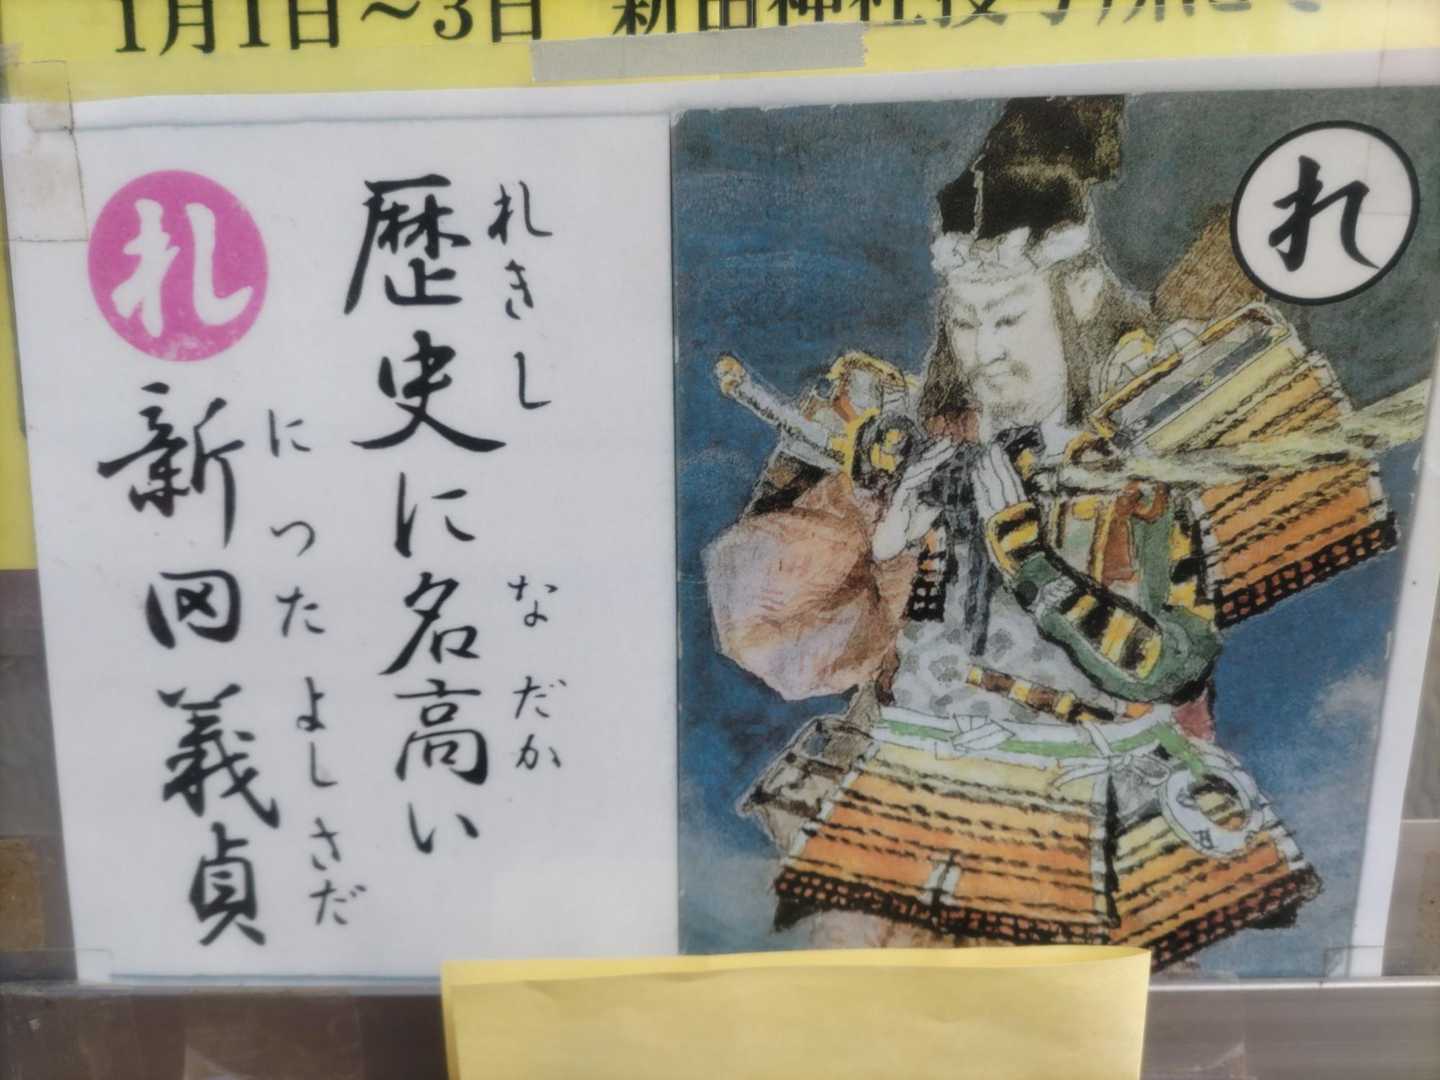 1月1日～3日 新田神社授与所にて
れ
歴史に名高い
れきし なだか
新田義貞
にったよしさだ
れ